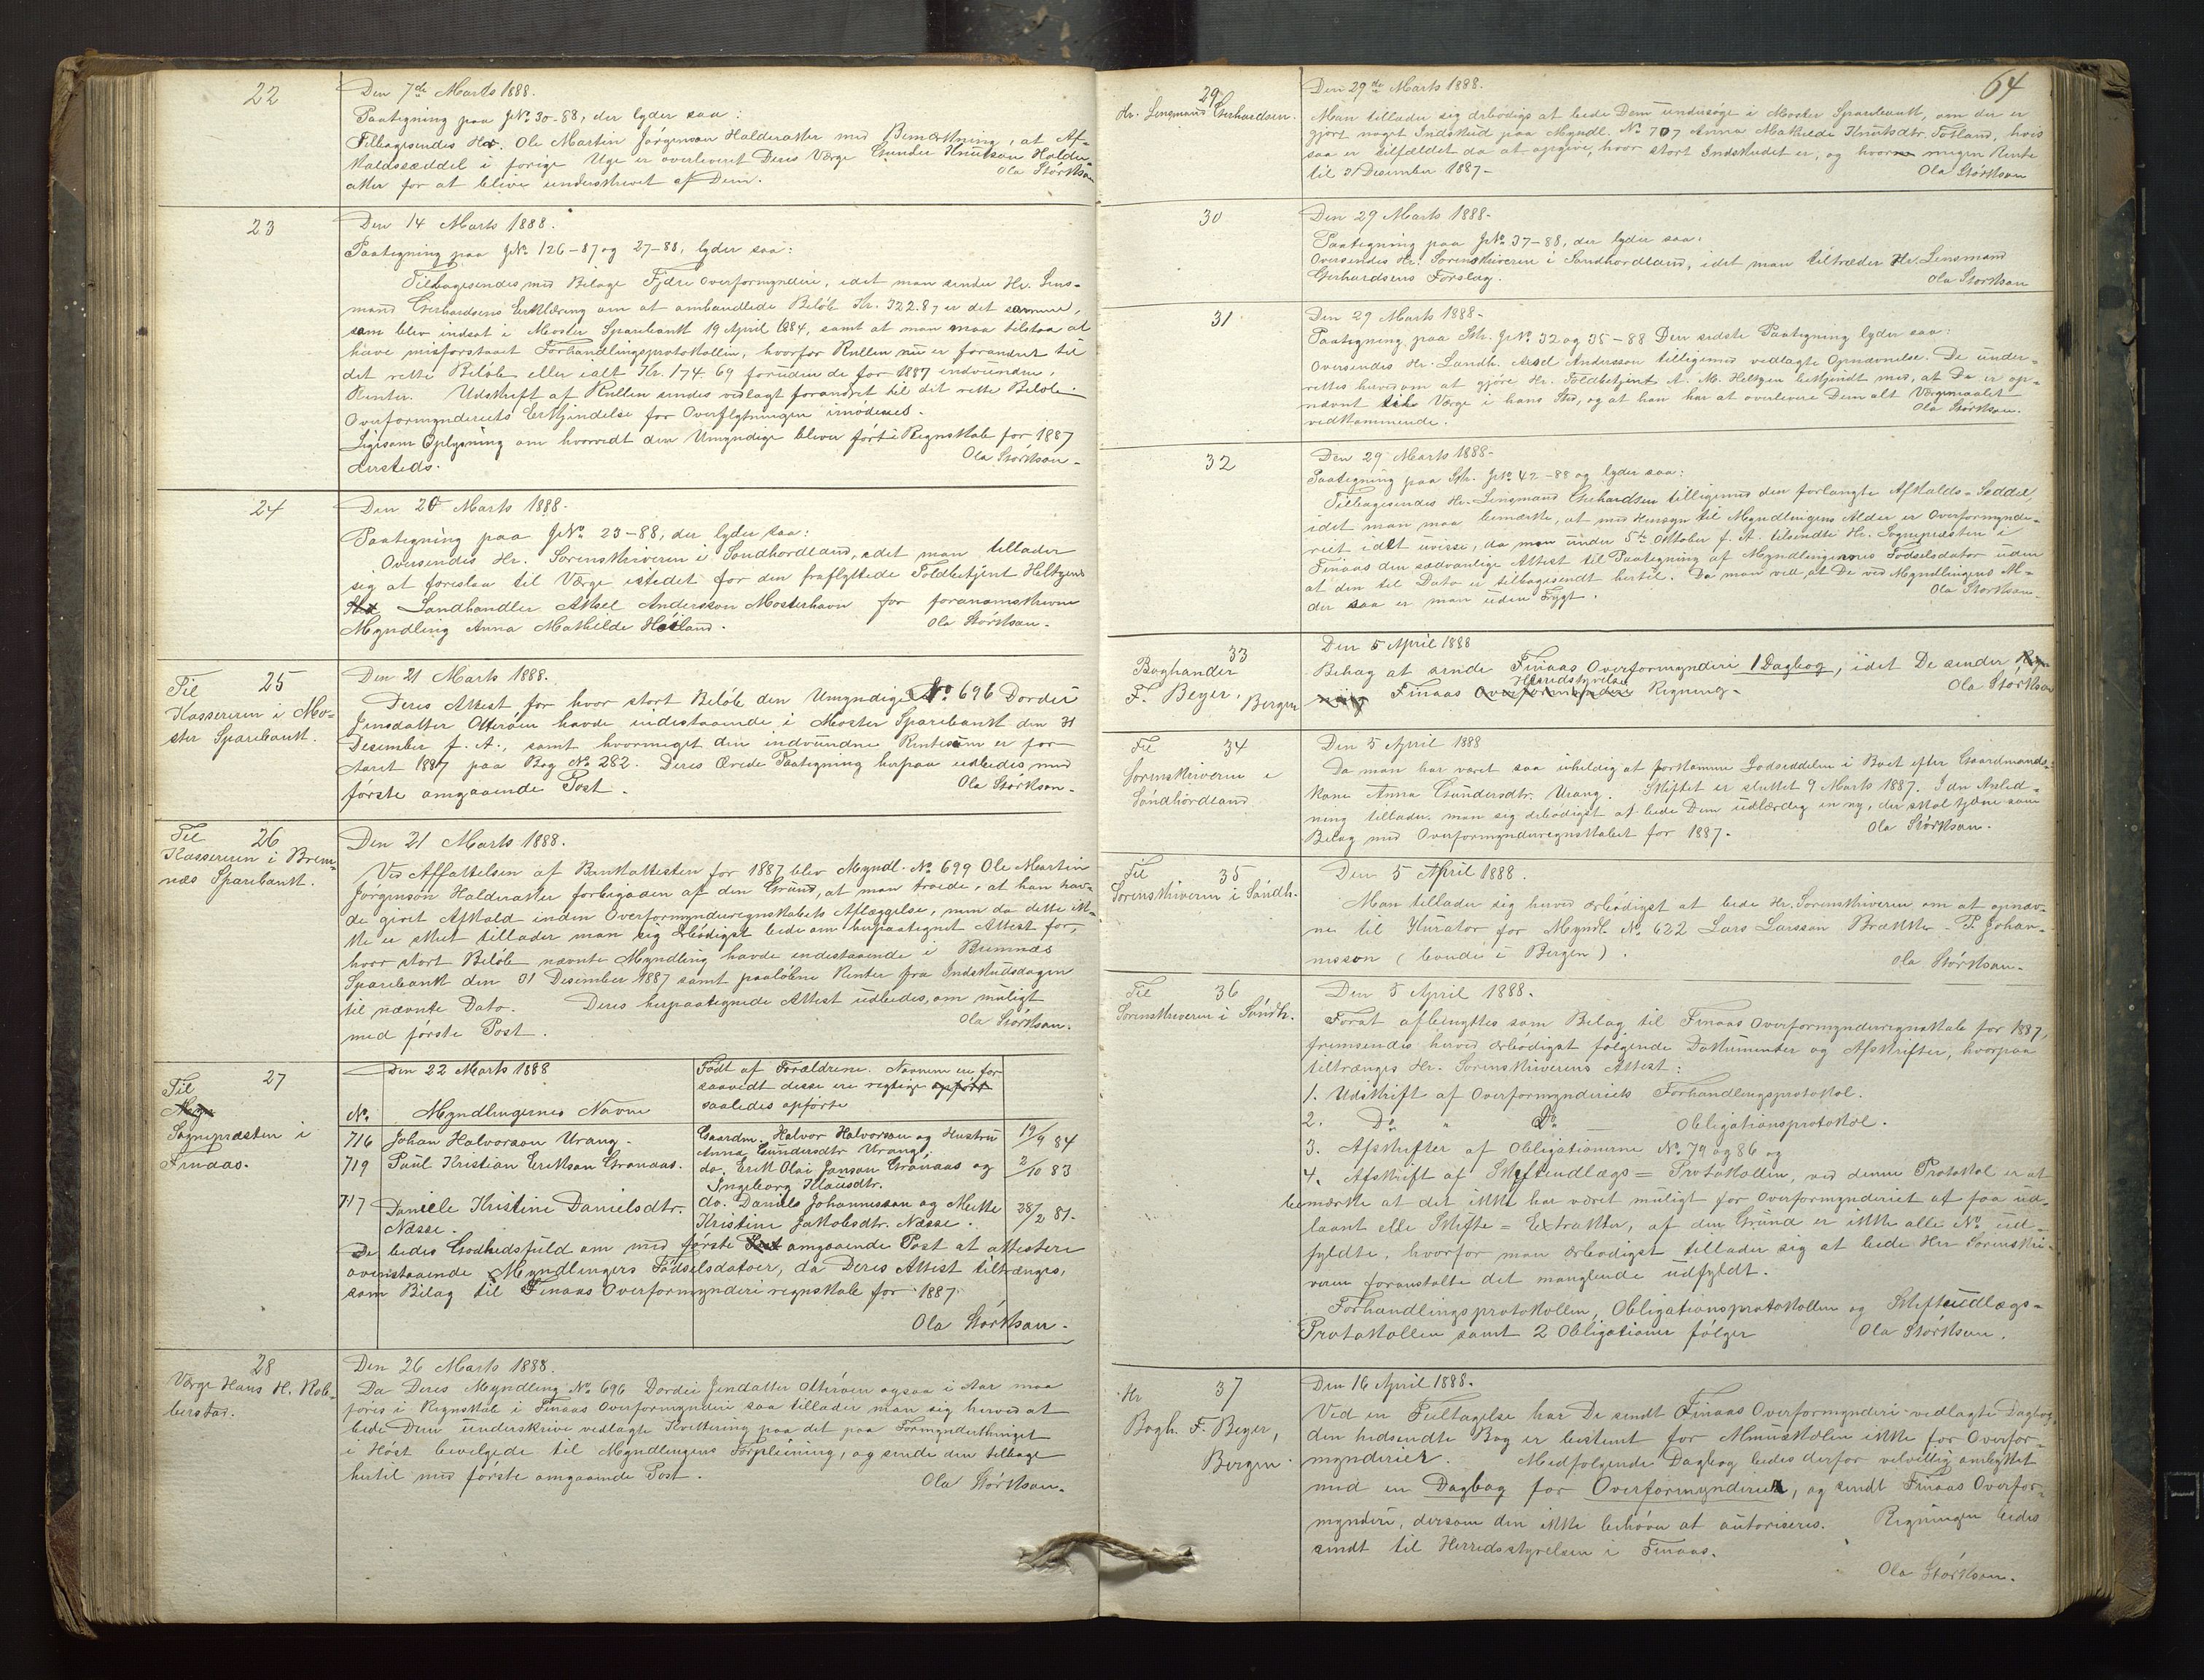 22
Den 7de Marts 1888.
Paategning paa JNo 30-88, der lyder saa:
Tilbagesendes Hr. Ole Martin Jörgenson Halderaker med Bemærkning, at Af-
kaldssæddel i forige Uge er overleveret Deres Værge Gunder Knutson Halder-
aker for at blive underskrevet af Dem.
Ola Störkson
23
Den 14 Marts 1888.
Paategning paa JNo 126-87 og 27-88, lyder saa:
Tilbagesendes med Bilage Fjære Overformynderi, idet man sender Hr. Lens-
mand Gerhardsens Erklæring om at ombandlede Belöb Kr. 322.87 er det samme,
som blev indsat i Moster Sparebank 19 April 1884, samt at man maa tilstaa at
have misforstaaet Forhandlingsprotokollen, hvorfor Rullen nu er forandret til
det rette Belöb eller ialt Kr. 174.69 foruden de for 1887 indvundne
Renter. Udskrift af Rullen sendes vedlagt forandret til det rette Belöb.
Overformynderiets Erkjendelse for Overflytningen imödesees.
Ligesom Oplysning om hvorvidt den Umyndige bliver fört i Regnskab for 1887
dersteds.
Ola Störkson-
24
Den 20 Marts 1888.
Paategning paa JNo 23-88, der lyder saa:
Oversendes Hr. Sorenskriveren i Söndhordland, idet man tillader
sig at foreslaa til Værge istedet for den fraflyttede Toldbetjent Heltzen
Landhandler Aksel Anderson Mosterhavn for foranomskrevne
Myndling Anna Mathilde Hotland.
Ola Störkson.
Til 25
Kassereren i Mo-
ster Sparebank.
Den 21 Marts 1888.
Deres Attest for hvor stort Belöb den Umyndige No 696 Dordei
Jensdatter Otteröen havde indestaaende i Moster Sparebank den 31
Desember f. A., samt hvormeget den indvundne Rentesum er for
Aaret 1887 paa Bog No 282. Deres Ærede Paategning herpaa udbedes med
förste omgaaende Post.
Ola Störkson.
Til 26
Kassereren i Brem-
næs Sparebank.
Den 21 Marts 1888.
Ved Affattelsen af Bankattesten for 1887 blev Myndl. No 699 Ole Martin
Jörgenson Halderaker forbigaaen af den Grund, at man troede, at han hav-
de givet Afkald inden Overformynderregnskabets Aflæggelse, men da dette ik-
ke er skeet tillader man sig ærbödigst bede om herpaategnet Attest for,
hvor stort Belöb nævnte Myndling havde indestaaende i Bremnæs
Sparebank den 31 Desember 1887 samt paalöbne Renter fra Indskudsdagen
til nævnte Dato. Deres herpaategnede Attest udbedes, om muligt
med förste Post.
Ola Störkson.
Til 27
Sognepræsten i
Finaas.
Den 22 Marts 1888
Födt af Forældrene. Navnene ere for
saavidt disse ere regtige opfört
saaledes opförte
No. Myndlingernes Navne
716 Johan Halvorson Urang. Gaardm. Halvor Halvorson og Hustru 19/9 84
Anna Gundersdtr Urang
719 Paul Kristian Erikson Grönaas. do. Erik Olai Janson Grönaas og 2/10 83
Ingeborg Klausdtr.
717 Daniele Kristine Danielsdtr. do. Daniels Johannesson og Mette 28/2 81.
Næsse. Kristine Jakobsdtr. Næsse.
De bedes Godhedsfuld om med förste omgaaende Post at attestere
ovenstaaende Myndlingers Födselsdatoer, da Deres Attest tiltrænges,
som Bilag til Finaas Overformynderi regnskab for 1887.
Ola Störkson.
28
Værge Hans H. Rob-
berstad.
Den 26 Marts 1888.
Da Deres Myndling No 696 Dordei Jendatter Otteröen ogsaa i Aar maa
föres i Regnskab i Finaas Overformynderi saa tillader man sig herved at
bede Dem underskrive vedlagte Kvittering paa det paa Formynderthinget
i Höst bevilgede til Myndlingens Forpleining, og sende den tilbage
hertil med förste omgaaende Post.
Ola Störkson.
64
29
Hr. Lensmand Gerhardsen.
Den 29de Marts 1888.
Man tillader sig ærbödigst at bede Dem undersöge i Moster Sparebank, om der er
gjort noget Indskud paa Myndl. No 707 Anna Mathilde Knutsdtr. Totland, hvis
saa er tilfældet da at opgive, hvor stort Indskudet er, og hvor megen Rente
til 31 Desember 1887-
Ola Störkson
30
Den 29 Marts 1888-
Paategning paa JNo 37-88, der lyder saa:
Oversendes Hr. Sorenskriveren i Söndhordland, idet man tiltræder Hr. Lensmand
Gerhardsens Forslag.
Ola Störkson
31
Den 29 Marts 1888-
Paategning paa Skr. JNo 32 og 35-88 Den sidste Paategning lyder saa:
Oversendes Hr. Landh. Aksel Andersson tilligemed vedlagte Opnævnelse. De under-
rettes herved om at gjöre Hr. Toldbetjent A. M. Heltzen bekjendt med, at De er op-
nævnt til Værge i hans Sted, og at han har at overlevere Dem alt Værgemaalet
vedkommende.
Ola Störkson.
32
Den 29 Marts 1888-
Paategning paa Skr. JNo 42-88 og lyder saa:
Tilbagesendes Hr. Lensmand Gerhardsen tilligemed den forlangte Afkalds-Seddel,
idet man maa bemærke, at med Hensyn til Myndlingens Alder er Overformynde-
riet idet uvisse, da man under 5te Oktober f. A. tilsendte Hr. Sognepræsten i
Finaas den sædvanlige Attest til Paategning af Myndlingernes Födselsdator uden
at den til Dato er tilbagesendt hertil. Da man ved, at De ved Myndlingens Al-
der saa er man uden Frygt.
Ola Störkson.
33
Boghander
F. Beyer,
Bergen
Den 5 April 1888
Behag at sende Finaas Overformynderi 1 Dagbog, idet De sender
Finaas Overformynderi Herredstyrelse Regning-
Ola Störkson
Til 34
Sorenskriveren i
Söndhordland
Den 5 April 1888
Da man har været saa uheldig at forkomme Lodseddelen i Boet efter Gaardmands-
kone Anna Gundersdtr. Urang. Skiftet er sluttet 9 Marts 1887. I dn Anled-
ning tillader man sig ærbödigst at bede Dem udfærdig en ny, der skal tjene som
Bilag med Overformynderregnskabet for 1887-
Ola Störkson.
Til 35
Sorenskriveren i Söndh.
Den 5 April 1888.
Man tillader sig herved ærbödigst at bede Hr. Sorenskriveren om at opnæv-
ne til Kurator for Myndl. No 622 Lars Larsson Brække - P. Johan-
nesson (boende i Bergen).
Ola Störkson.
Til 36
Sorenskriveren i Söndh.
Den 5 April 1888.
Forat afbenyttes som Bilag til Finaas Overformynderregnskab for 1887,
fremsendes herved ærbödigst fölgende Dokumenter og Afskrifter, hvorpaa
tiltrænges Hr. Sorenskriverens Attest:
1. Udskrift af Overformynderiets Forhandlingsprotokol.
2. Do " Do Obligationsprotokol.
3. Afskrifter af Obligationerne No 79 og 86 og
4. Afskrift af Skifteudlægs = Protokollen, ved denne Protokol er at
bemærke at det ikke har været muligt for Overformynderiet at faa ud-
laant elle Skifte = Extrakter, af den Grund er ikke alle No ud-
fyldte, hvorfor man ærbödigst tillader sig at bede Hr Sorenskri-
veren foranstalte det manglende udfyldt.
Forhandlingsprotokollen, Obligationsprotokollen og Skifteudlægs-
Protokollen samt 2 Obligationer fölger
Ola Störkson.
Hr 37
Bogh. F. Beyer,
Bergen.
Den 16 April 1888.
Ved en Feiltagelse har De sendt Finaas Overformynderi vedlagte Dagbog,
den hidsendte Bog er bestemt for Almueskolen ikke for Overfor-
mynderiet. Medfölgende Dagbog bedes derfor velvillig ombyttet
med en Dagbog for Overformynderiet, og sendt Finaas Overfor-
mynderi, dersom den ikke behöver at autoriseres. Regningen bedes
sendt til Herredsstyrelsen i Finaas.
Ola Störkson.